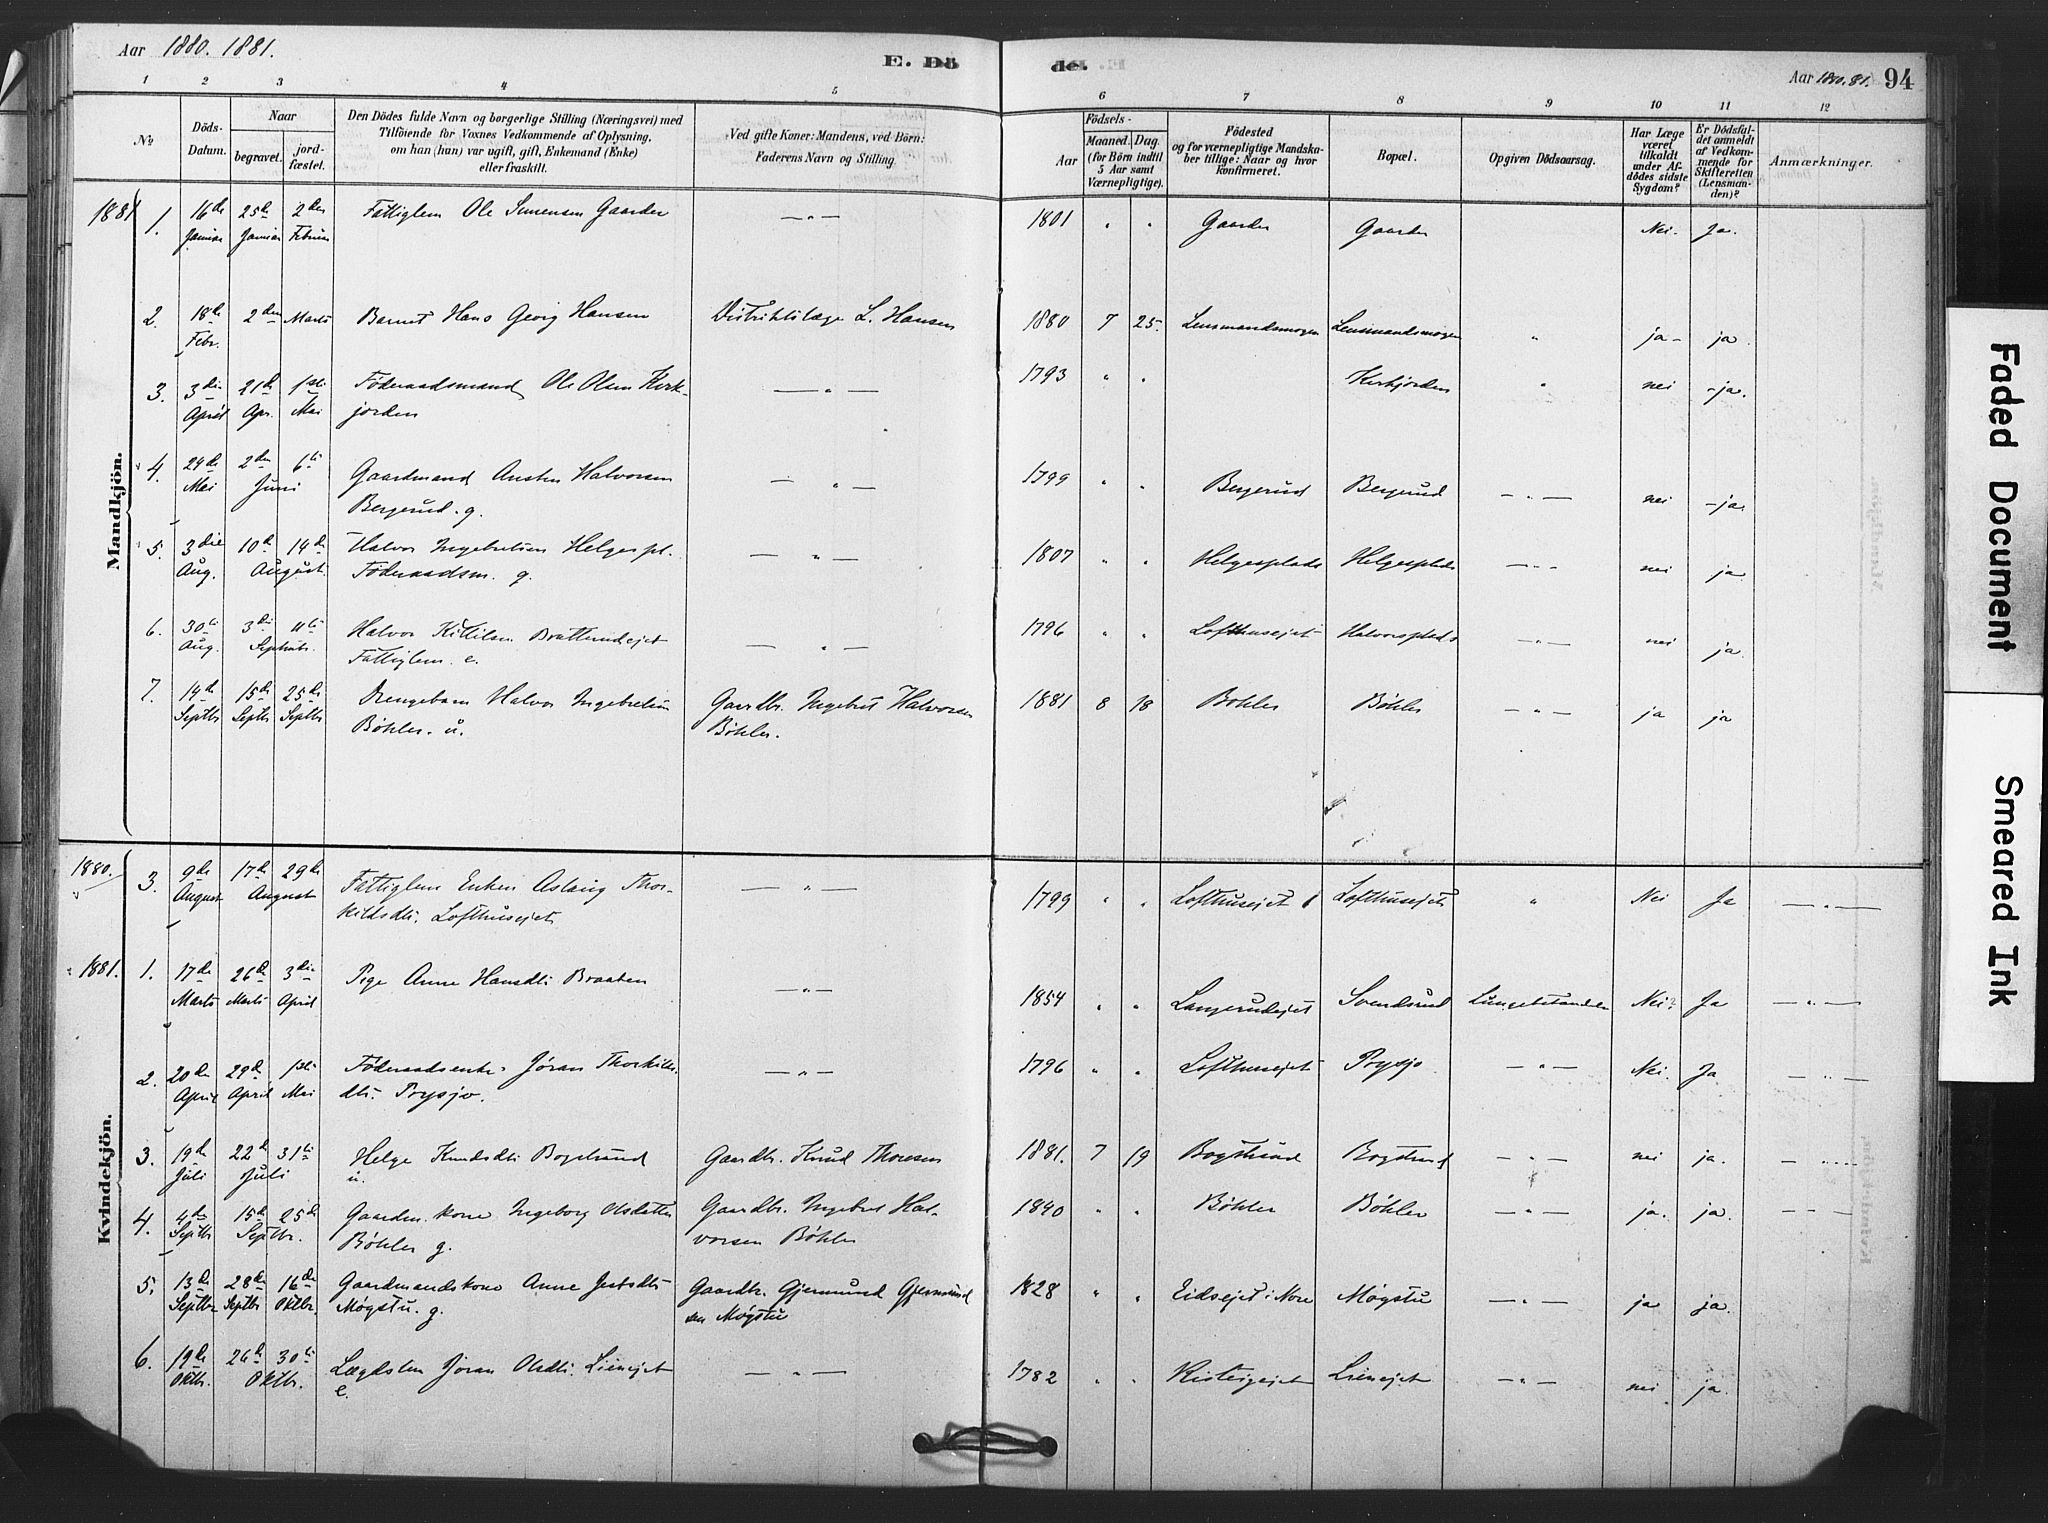 Aar 1880. 1881.
E. Dö
de.
Aar 1880.81. 94
1 2 3 4 5 6 7 8 9 10 11 12
No
Döds-
Datum.
Naar
begravet.
jord-
fæstet.
Den Dödes fulde Navn og borgerlige Stilling (Næringsvei) med
Tilföiende for Voxnes Vedkommende af Oplysning,
om han (hun) var ugift, gift, Enkemand (Enke)
eller fraskilt.
Ved gifte Koner: Mandens, ved Börn:
Faderens Navn og Stilling.
Födsels-
Aar
Maaned. Dag.
(for Börn indtil
5 Aar samt
Værnepligtige).
Födested
og for værnepligtige Mandska-
ber tillige: Naar og hvor
konfirmeret.
Bopæl.
Opgiven Dödsaarsag.
Har Læge
været
tilkaldt
under Af-
dödes sidste
Sygdom?
Er Dödsfal-
det anmeldt
af Vedkom-
mende for
Skifteretten
(Lensman-
den)?
Anmærkninger.
Mandkjön.
1881 1. 16de Januar 25de Januar 2den Februar Fattiglem Ole Simensen Gaarder — " — 1801 " " Gaarder Gaarder Nei. Ja.
2. 18de Febr. 2den Marts Barnet Hans Georg Hansen Distriktslæge L. Hansen 1880 7 25. Lensmandsmogen Lensmandsmogen " ja - ja
3. 3die April 21de Apr. 1ste Mai Föderaadsmand Ole Olsen Kirk-
jorden — " — 1793 " " Kirkjorden " nei - ja.
4. 24de Mai 2den 6te Juni Gaardmand Austen Halvorsen
Bergerud. g. — " — 1799 " " Bergerud Bergerud — " — nei - ja.
5. 3die Aug. 10de 14de August. Halvor Ingebretsen Helgespl.
Föderaadsm. g. — " — 1807 " " Helgesplads Helgesplads — " — nei ja
6. 30te Aug. 3die 11te Septbr. Halvor Kittilsen Bratterudejet
Fattiglem. e. — " — 1796 " " Lofthusejet Halvorsplads — " — nei ja.
7. 14de Septbr 15de Septbr 25de Septbr Drengebarn Halvor Ingebretsen
Böhler. u. Gaardbr. Ingebret Halvorsen
Böhler. 1881 8 18 Bohler Böhler — " — ja ja
Kvindekjön.
1880. 3. 9de August 17de 29de August Fattiglem Enken Aslaug Thor-
kildsdtr. Lofthusejet. — " — 1799 " " Lofthusejet Lofthusejet " Nei Ja — " —
1881. 1. 17de Marts 26de Marts 3die April Pige Anne Hansdtr Braaten — " — 1854 " " Langerudejet Svendsrud Lungebetændelse Nei? Ja — " —
2. 20de April 29de April 1ste Mai Föderaadsenke Jöran Thorkilds-
dtr. Prysjo. — " — 1796 " " Lofthusejet Prysjo — " — Nei. Ja — " —
3. 19de Juli 22de 31te Juli Helge Knudsdtr Bogstrand
u. Gaardbr. Knud Thoresen 1881. 7 19 Bogstrand Bogstrand — " — nei ja. — " —
4. 4de Septbr 15de 25de Septbr. Gaardm. kone Ingeborg Olsdatter
Böhler g. Gaardbr. Ingebret Hal-
vorsen Böhler 1840 " " Böhler Böhler — " — ja. ja. — " —
5. 13de Septbr 28de Septbr 16de Oktbr. Gaardmandskone Anne Jostsdtr
Møgstu. g. Gaardbr. Gjermund Gjermund
sen Møgstu 1828 " " Eidsejet i Nore Møgstu — " — ja ja.
6. 19de Oktbr. 26de 30te Oktbr. Lægdslem Jöran Olsdtr. Lienejet
e. — " — 1782 " " Kisteigejet Lienejet — " — nei ja.
Faded Document
Smeared Ink